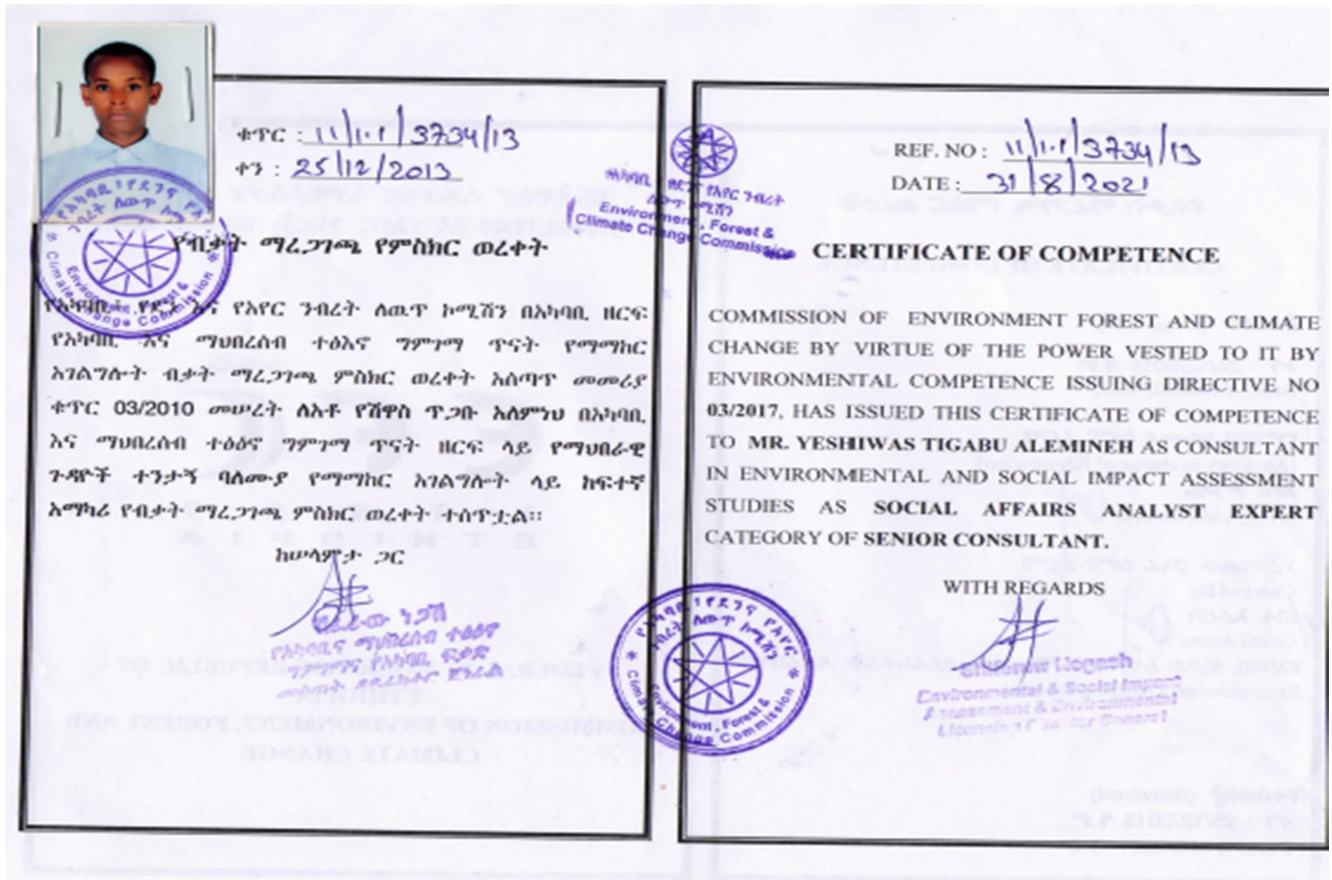 ቁጥር : 11/1.1/3734/13
ቀን : 25/12/2013
የብቃት ማረጋገጫ የምስክር ወረቀት
የአካባቢ፣ የደን እና የአየር ንብረት ለዉጥ ኮሚሽን በአካባቢ ዘርፍ
የአካባቢ እና ማህበረሰብ ተፅእኖ ግምገማ ጥናት የማማከር
አገልግሎት ብቃት ማረጋገጫ ምስክር ወረቀት አሰጣጥ መመሪያ
ቁጥር 03/2010 መሠረት ለአቶ የሽዋስ ጥጋቡ አለምነህ በአካባቢ
እና ማህበረሰብ ተፅዕኖ ግምገማ ጥናት ዘርፍ ላይ የማህበራዊ
ጉዳዮች ተንታኝ ባለሙያ የማማከር አገልግሎት ላይ ከፍተኛ
አማካሪ የብቃት ማረጋገጫ ምስክር ወረቀት ተሰጥቷል፡፡
ከሠላምታ ጋር
Environment, Forest &
Climate Change Commission
REF. NO : 11/1.1/3734/13
DATE : 31/8/2021
CERTIFICATE OF COMPETENCE
COMMISSION OF ENVIRONMENT FOREST AND CLIMATE
CHANGE BY VIRTUE OF THE POWER VESTED TO IT BY
ENVIRONMENTAL COMPETENCE ISSUING DIRECTIVE NO
03/2017, HAS ISSUED THIS CERTIFICATE OF COMPETENCE
TO MR. YESHIWAS TIGABU ALEMINEH AS CONSULTANT
IN ENVIRONMENTAL AND SOCIAL IMPACT ASSESSMENT
STUDIES AS SOCIAL AFFAIRS ANALYST EXPERT
CATEGORY OF SENIOR CONSULTANT.
WITH REGARDS
Environmental & Social Impact
Assessment & Environmental
Environment, Forest &
Climate Change Commission